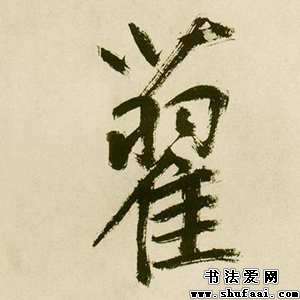 藋
书法爱网
www.shufaai.com